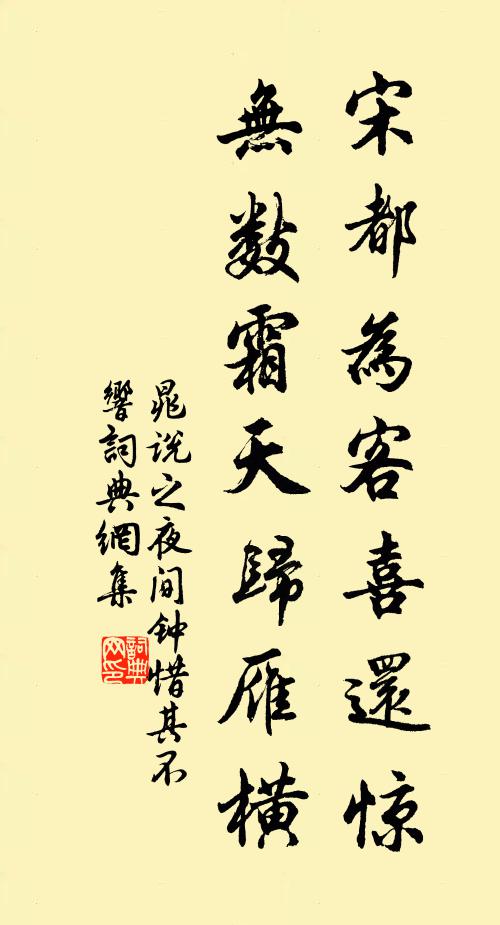 宋都為客喜還惊
無数霜天歸雁橫
晁说之夜间钟惜其不
響詞典網集
詞典网印